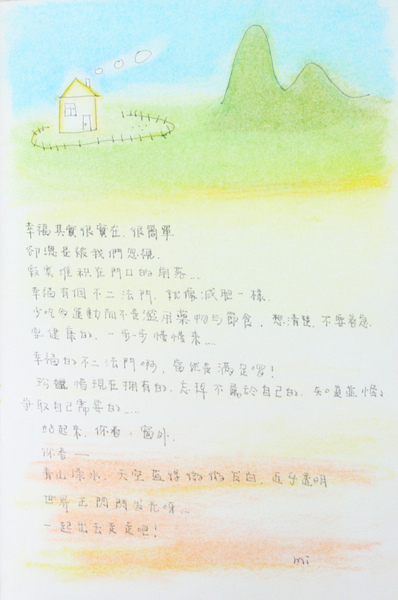 幸福其實很實在、很簡單
卻總是被我們忽視
寂寞堆積在門口的角落...
幸福有個不二法門,就像減肥一樣
少吃多運動而不是濫用藥物与節食,想清楚,不要着急
要健康的,一步一步慢慢來...
幸福的不二法門啊,當然是滿足嘍!
珍惜現在擁有的,忘掉不屬於自己的,知道這惜
爭取自己需要的....
站起來,你看,窗外
你看——
青山綠水,天空藍得微微泛白,近乎透明
世界正悶悶發光呀...
一起出去走走吧!
mi